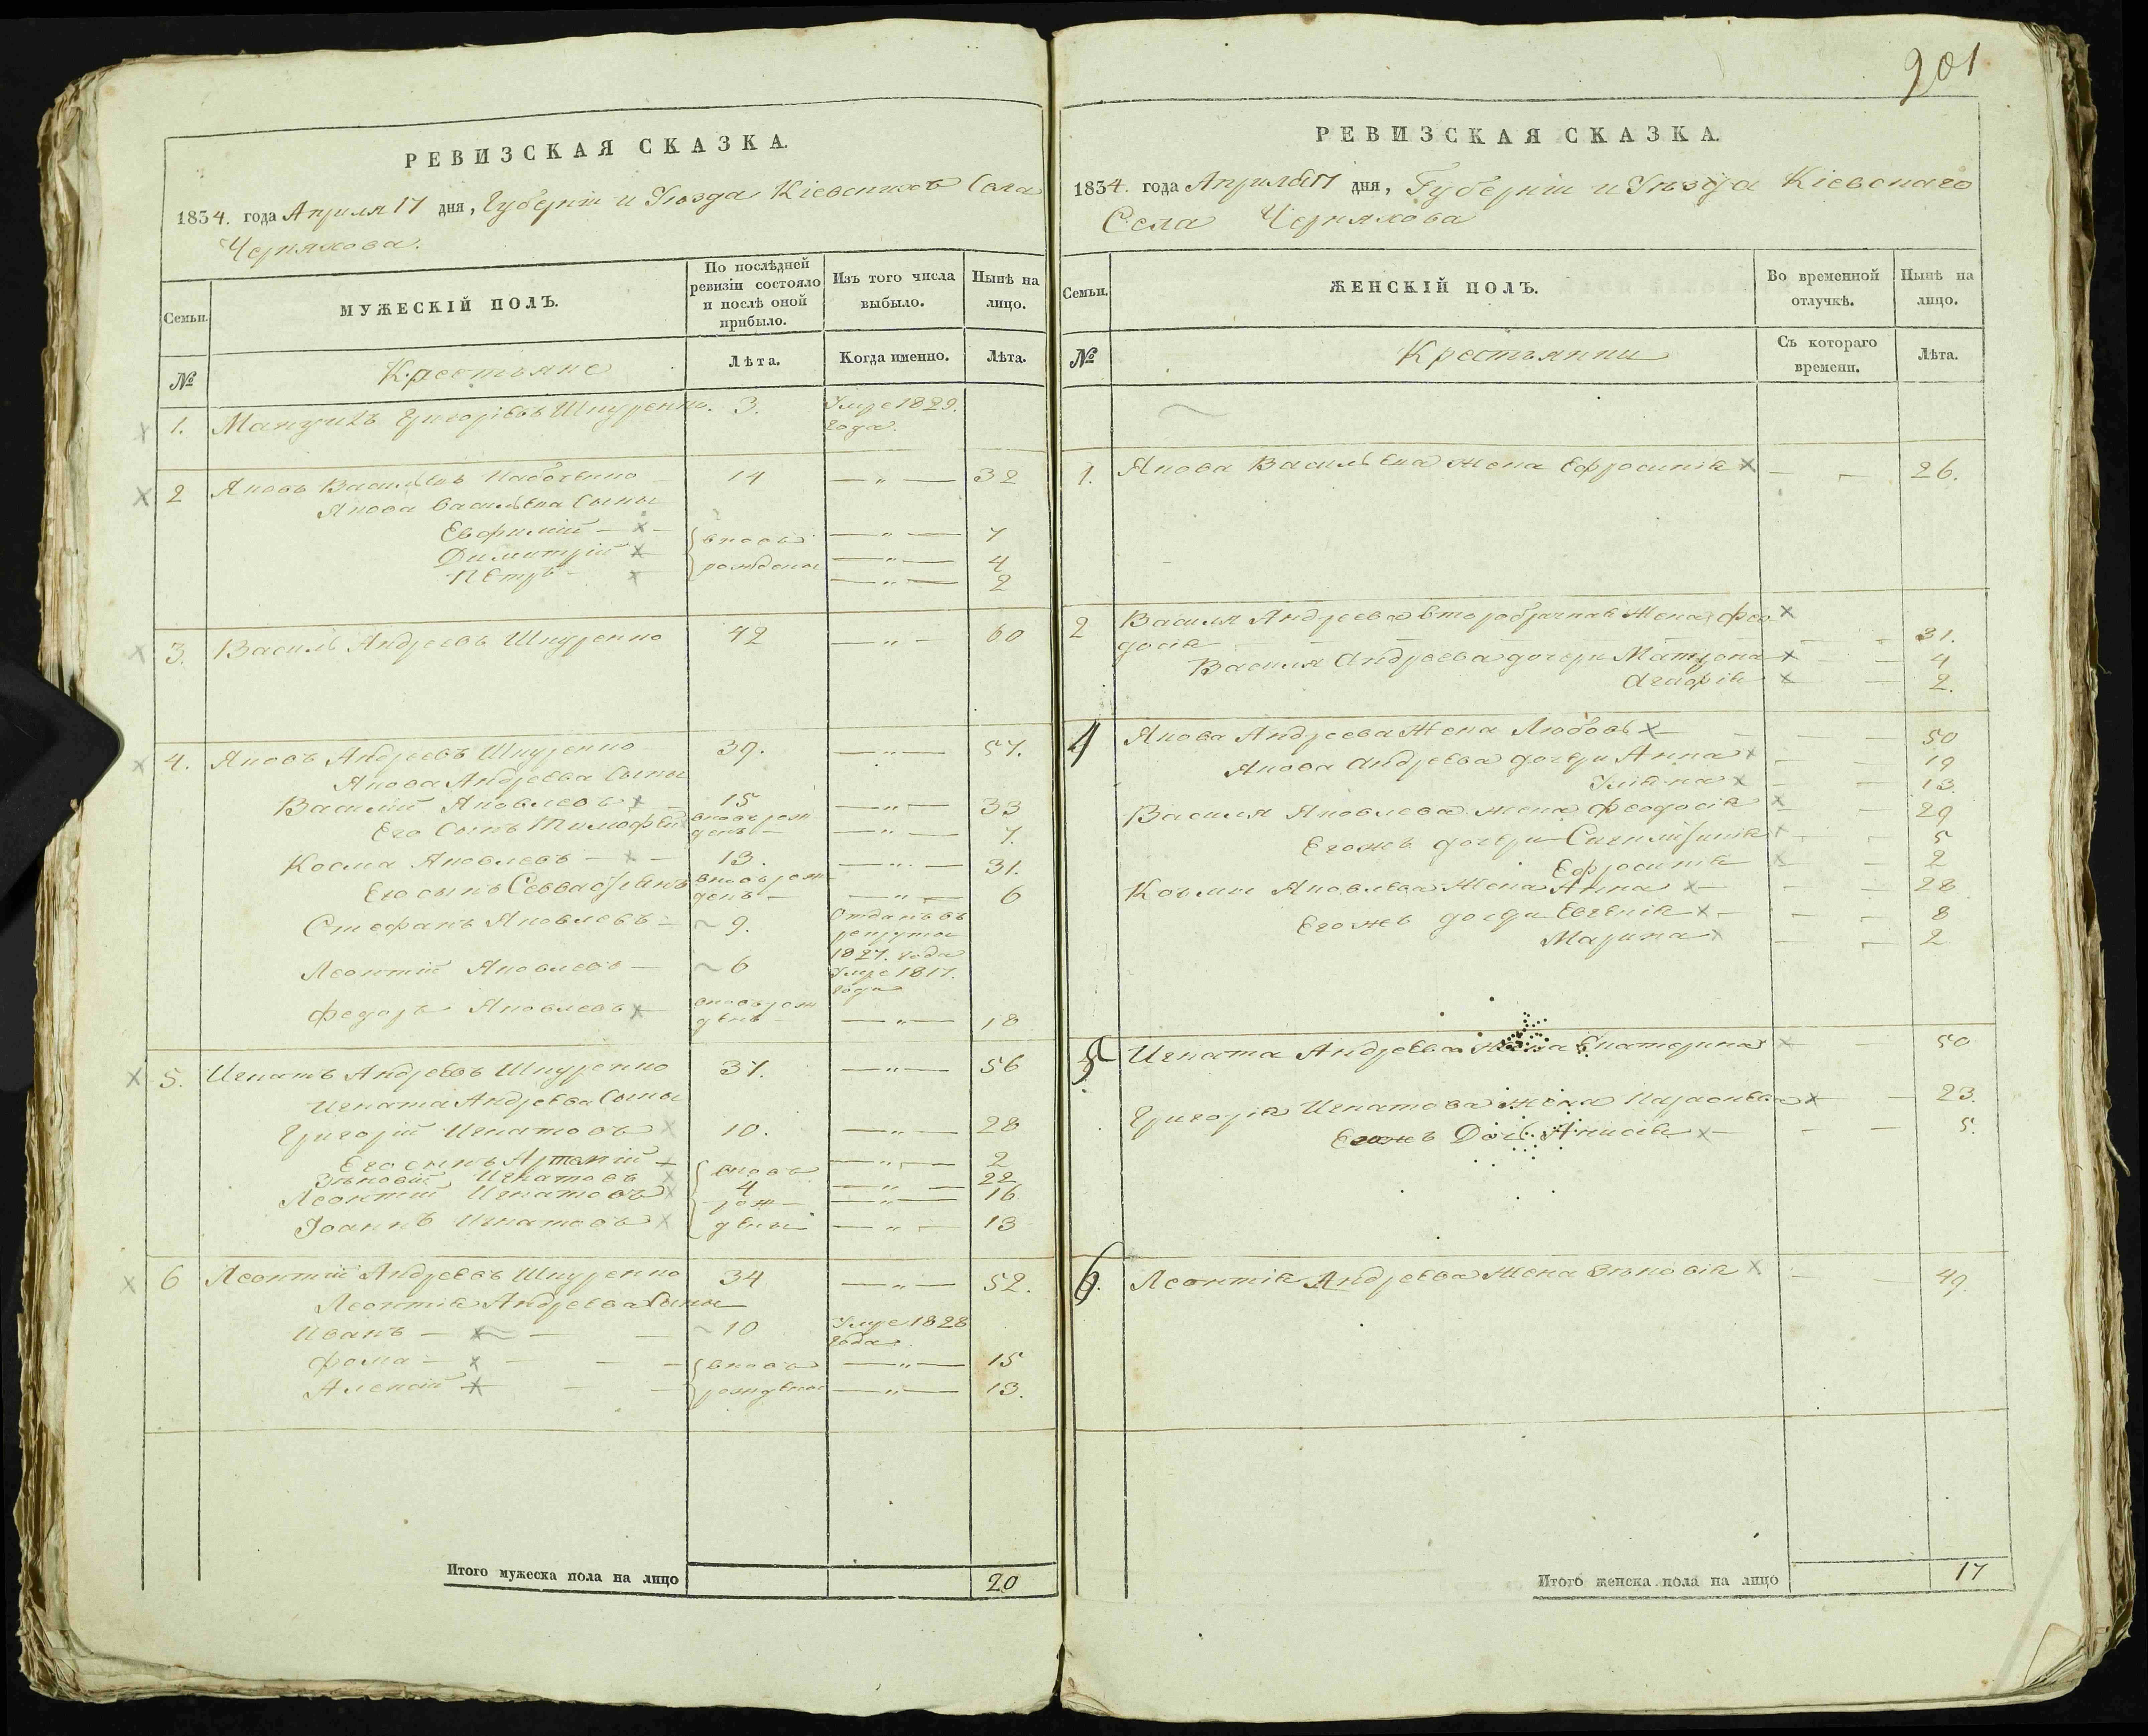 РЕВИЗСКАЯ СКАЗКА.
1834. года Апреля 17 дня, Губерніи и Уѣзда Кіевскихъ Села
Черняхова.
Семьи.
МУЖЕСКІЙ ПОЛЪ.
По послѣдней
ревизіи состояло
и послѣ оной
прибыло.
Изъ того числа
выбыло.
Нынѣ на
лицо.
№
Крестьяне
Лѣта.
Когда именно.
Лѣта.
1. Григорьевъ Шпуренко. 3. Умре 1829.
года.
2 Яковъ Васильевъ 14 — " — 32
Якова Васильева Сыны
Евфимій — х — вновь — " — 7
Димитрій х рождены — " — 4
Петръ — х — " — 2
3. Василь Андреевъ Шпуренко 42 — " — 60
4. Яковъ Андреевъ Шпуренко 39. — " — 57.
Якова Андреева Сыны
Василій Яковлевъ х — 15 — " — 33
Его Сынъ Тимофей вновь рож
денъ — — " — 7.
Косма Яковлевъ — х — 13. — " — 31.
Его сынъ Севастіанъ вновь рож
денъ — — " — 6
Стефанъ Яковлевъ — ~ 9. Отданъ въ
рекруты
1827. года
Леонтій Яковлевъ — ~ 6 Умре 1817.
года
Федоръ Яковлевъ х вновь рож
денъ — " — 18
5. Игнатъ Андреевъ Шпуренко 37. — " — 56
Игната Андреева Сыны
Григорій Игнатовъ х 10. — " — 28
Его сынъ Артемій — вновь — " — 2
Зѣновій Игнатовъ х 4 — " — 22
Леонтій Игнатовъ х рож — — " — 16
Іоаннъ Игнатовъ х дены — " — 13
6 Леонтій Андреевъ Шпуренко 34 — " — 52.
Леонтія Андреева Сыны
Иванъ — х — ~ 10 Умре 1828
года.
Фома — х — вновь — " — 15
Алексій х — рождены — " — 13.
Итого мужеска пола на лицо 20
201
РЕВИЗСКАЯ СКАЗКА.
1834. года Апреля 17 дня, Губерніи и Уѣзда Кіевскаго
Села Черняхова
Семьи.
ЖЕНСКІЙ ПОЛЪ.
Во временной
отлучкѣ.
Нынѣ на
лицо.
№
Крестьянки
Съ котораго
времени.
Лѣта.
1. Якова Васильева жена Ефросинія х — — 26.
2 Василя Андреева второбрачная Жена Фео х
досія — — 31.
Василя Андреева дочери Матрона х — — 4
Агафія х — 2.
4 Якова Андреева Жена Любовь х — — 50
Якова Андреева дочери Анна х — — 19
Уліяна х — — 13.
Василя Яковлева жена Феодосія х — — 29
Егожъ дочери х — — 5
Ефросинія х — — 2
Космы Яковлева Жена Анна х — — — 28
Егожъ дочери Евгенія х — — — 8
Марина х — — 2
5 Игната Андреева жена Екатерина х — 50
Григорія Игнатова жена Параскева х — — 23.
Егожъ Дочь Анисія х — — — 5.
6. Леонтія Андреева Жена Зѣновія х — — 49.
Итого женска пола на лицо 17